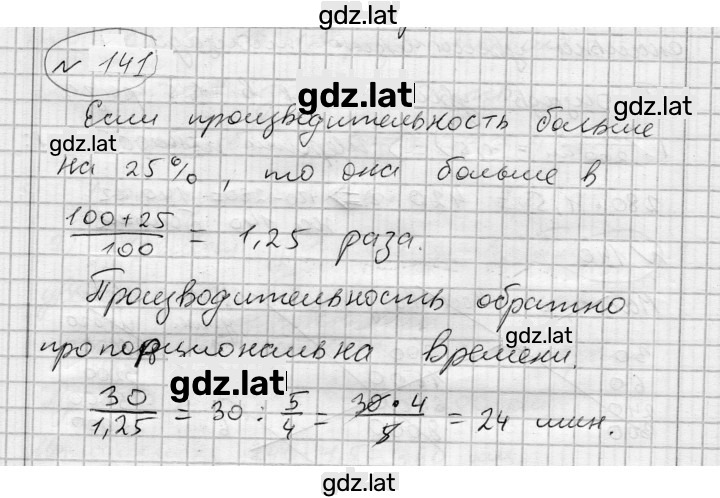 gdz.lat
№ 141
gdz.lat
Если производительность больше
gdz.lat
на 25%, то она больше в
(100+25)/100 = 1,25 раза.
Производительность обратно
gdz.lat
пропорциональна времени.
gdz.lat
30/1,25 = 30 : 5/4 = 30·4/5 = 24 мин.